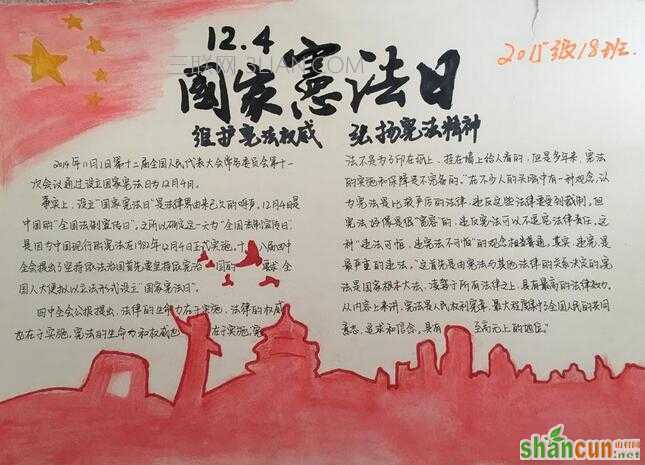 12.4
国家憲法日
2015级18班
三联网 3LIAN.COM
维护宪法权威 弘扬宪法精神
2014年11月1日第十二届全国人民代表大会常务委员会第十一
次会议通过设立国家宪法日为12月4日。
事实上,设立“国家宪法日”是法律界由来已久的呼声,12月4日是
中国的“全国法制宣传日”,之所以确定这一天为“全国法制宣传日”,
是因为中国现行的宪法在1982年12月4日正式实施。十八届四中
全会提出了坚持依法治国首先要坚持依宪 国的 要求 全
国人大便拟以立法形式设立“国家宪法日”。
四中全会公报提出,法律的生命力在于实施,法律的权威
也在于实施,宪法的生命力和权威也 在于实施,宪
法不是为了印在纸上、挂在墙上给人看的,但是多年来,宪法
的实施和保障是不完备的。“在不少人的头脑中有一种观念,认
为宪法是比较严厉的法律,违反这些法律要受到裁制,但
宪法好像是很“宽容”的,违反宪法可以不追究法律责任。这
种“违法可怕,违宪法不可怕”的观念相当普遍。其实,违宪是
最严重的违法。”“这首先是由宪法与其他法律的关系决定的,宪
法是国家根本大法,凌驾于所有法律之上,具有最高的法律效力。
从内容上来讲,宪法是人民权利宪章,最大程度集中了全国人民的共同
意志、追求和信念,具有 至高无上的地位。”
shancun
山村网
.net